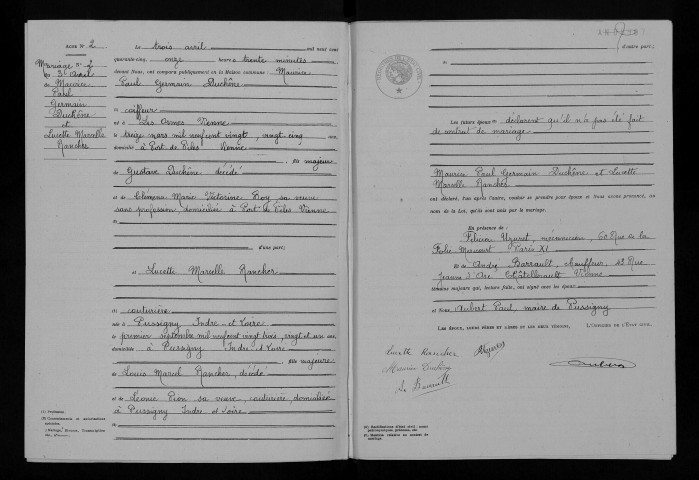 ACTE N° 2
Mariage n° 2
du 3 Avril
de Maurice
Paul
Germain
Duchêne
et
Lucette Marcelle
Rancher
Le trois avril mil neuf cent
quarante-cinq, onze heures trente minutes
devant Nous, ont comparu publiquement en la Maison commune : Maurice
Paul Germain Duchêne
(1) coiffeur
né à Les Ormes Vienne
le treize mars mil neuf cent vingt, vingt cinq ans
domicilié à Port de Piles Vienne
, fils majeur
de Gustave Duchêne décédé
et de Clémence Marie Victorine Roy sa veuve
sans profession domiciliée à Port de Piles Vienne
d'une part;
et Lucette Marcelle Rancher
(1) couturière
née à Pussigny Indre-et-Loire
le premier septembre mil neuf cent vingt trois, vingt et un ans
domiciliée à Pussigny Indre-et-Loire
, fille majeure
de Louis Marcel Rancher, décédé
et de Léonie Pion sa veuve, couturière, domiciliée
à Pussigny Indre-et-Loire
(1) Profession.
d'autre part;
Les futurs époux déclarent qu'il n'a pas été fait
de contrat de mariage
Maurice Paul Germain Duchêne et Lucette
Marcelle Rancher
ont déclaré, l'un après l'autre, vouloir se prendre pour époux et Nous avons prononcé, au
nom de la Loi, qu'ils sont unis par le mariage.
En présence de : Félicien Uzuret, mécanicien, 60 Rue de la
Folie Méricourt Paris XI
Et de André Barrault, chauffeur, 42 Rue
Jeanne d'Arc Châtellerault Vienne
témoins majeurs qui, lecture faite, ont signé avec les époux
et Nous Aubert Paul, maire de Pussigny
LES ÉPOUX, LEURS PÈRES ET MÈRES ET LES DEUX TÉMOINS, L'OFFICIER DE L'ÉTAT CIVIL,
Lucette Rancher
Maurice Duchêne
A. Barrault
Aubert